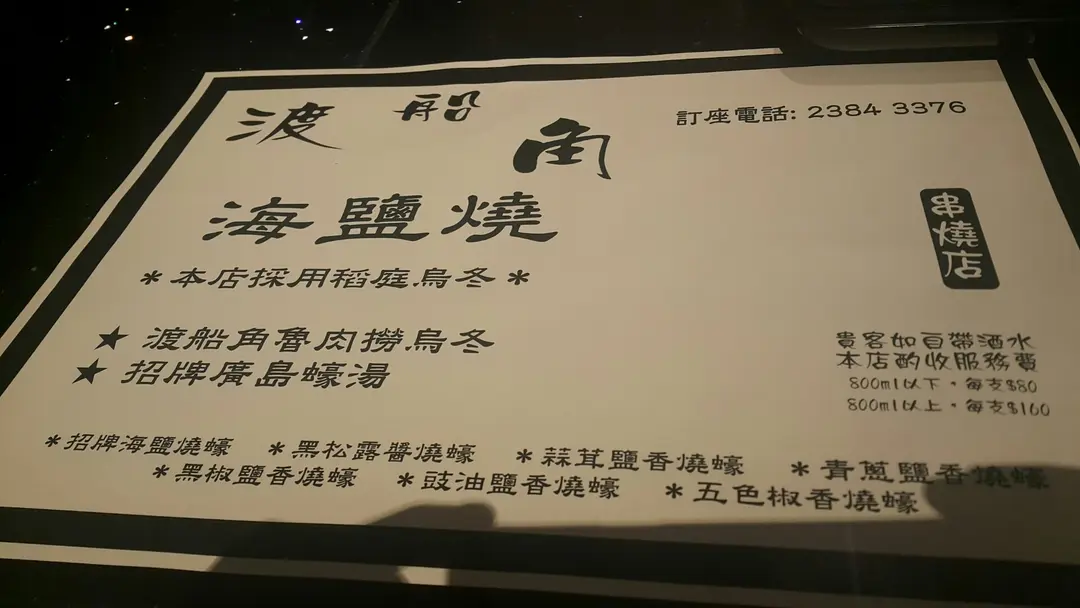 渡船角
訂座電話: 2384 3376
海鹽燒
串燒店
＊本店採用稻庭烏冬＊
★ 渡船角魯肉撈烏冬
★ 招牌廣島蠔湯
貴客如自帶酒水
本店酌收服務費
800ml以下，每支$80
800ml以上，每支$160
＊招牌海鹽燒蠔 ＊黑松露醬燒蠔 ＊蒜茸鹽香燒蠔 ＊青蔥鹽香燒蠔
＊黑椒鹽香燒蠔 ＊豉油鹽香燒蠔 ＊五色椒香燒蠔